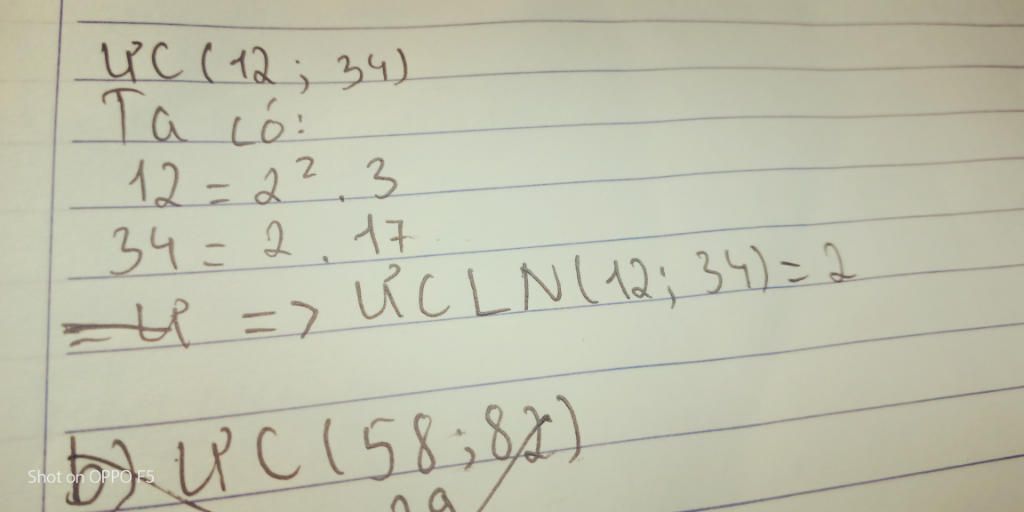 ƯC(12; 34)
Ta có:
12 = 2² . 3
34 = 2 . 17
=> ƯCLN(12; 34) = 2
b) ƯC(58; 82)
29
Shot on OPPO F5